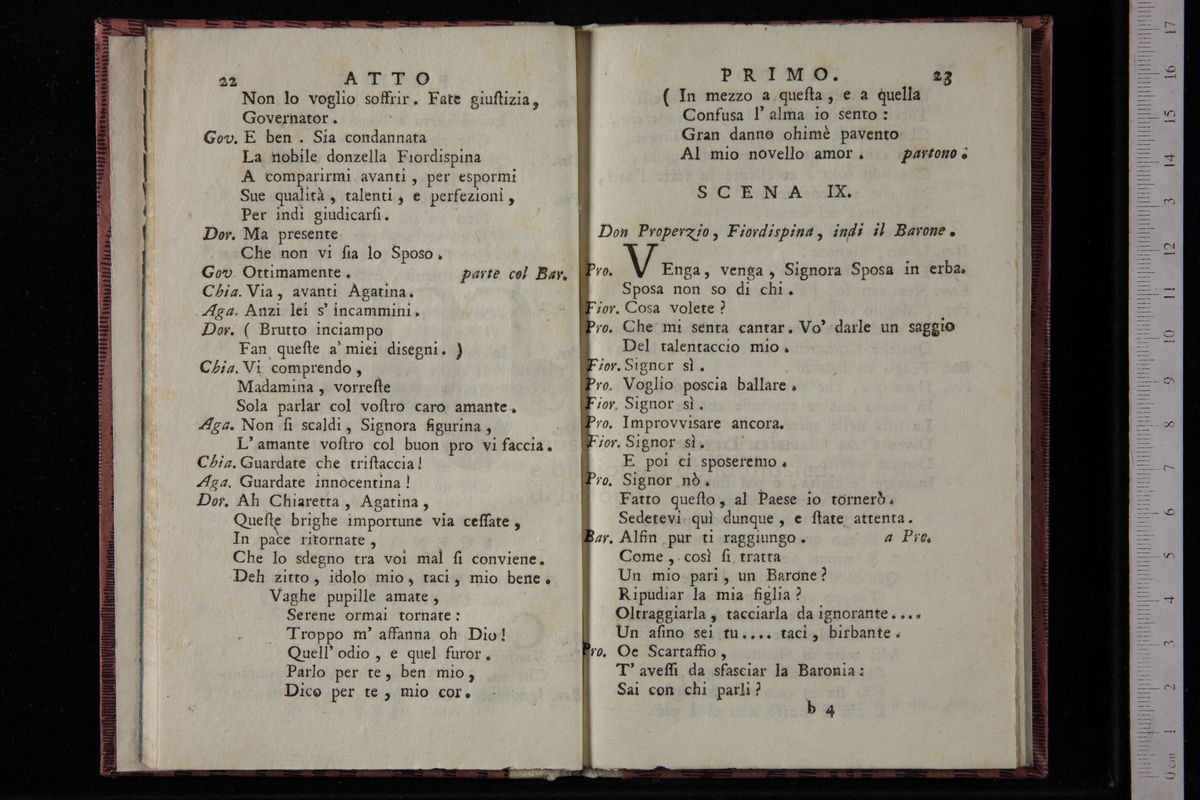 22 ATTO
Non lo voglio soffrir. Fate giuſtizia,
Governator.
Gov. E ben. Sia condannata
La nobile donzella Fiordispina
A comparirmi avanti, per espormi
Sue qualità, talenti, e perfezioni,
Per indi giudicarſi.
Dor. Ma presente
Che non vi ſia lo Sposo.
Gov Ottimamente. parte col Bar.
Chia. Via, avanti Agatina.
Aga. Anzi lei s' incammini.
Dor. ( Brutto inciampo
Fan queſte a' miei disegni. )
Chia. Vi comprendo,
Madamina, vorreſte
Sola parlar col voſtro caro amante.
Aga. Non ſi scaldi, Signora figurina,
L' amante voſtro col buon pro vi faccia.
Chia. Guardate che triſtaccia!
Aga. Guardate innocentina!
Dor. Ah Chiaretta, Agatina,
Queſte brighe importune via ceſſate,
In pace ritornate,
Che lo sdegno tra voi mal ſi conviene.
Deh zitto, idolo mio, taci, mio bene.
Vaghe pupille amate,
Serene ormai tornate:
Troppo m' affanna oh Dio!
Quell' odio, e quel furor.
Parlo per te, ben mio,
Dico per te, mio cor.
PRIMO. 23
( In mezzo a queſta, e a quella
Confusa l' alma io sento:
Gran danno ohimè pavento
Al mio novello amor. partono.
SCENA IX.
Don Properzio, Fiordispina, indi il Barone.
Pro. VEnga, venga, Signora Sposa in erba.
Sposa non so di chi.
Fior. Cosa volete?
Pro. Che mi senta cantar. Vo' darle un saggio
Del talentaccio mio.
Fior. Signor sì.
Pro. Voglio poscia ballare.
Fior. Signor sì.
Pro. Improvvisare ancora.
Fior. Signor sì.
E poi ci sposeremo.
Pro. Signor nò.
Fatto queſto, al Paese io tornerò.
Sedetevi quì dunque, e ſtate attenta.
Bar. Alfin pur ti raggiungo. a Pro.
Come, così ſi tratta
Un mio pari, un Barone?
Ripudiar la mia figlia?
Oltraggiarla, tacciarla da ignorante....
Un aſino sei tu.... taci, birbante.
Pro. Oe Scartaffio,
T' aveſſi da sfasciar la Baronia:
Sai con chi parli?
b 4
0 cm 1 2 3 4 5 6 7 8 9 10 11 12 13 14 15 16 17